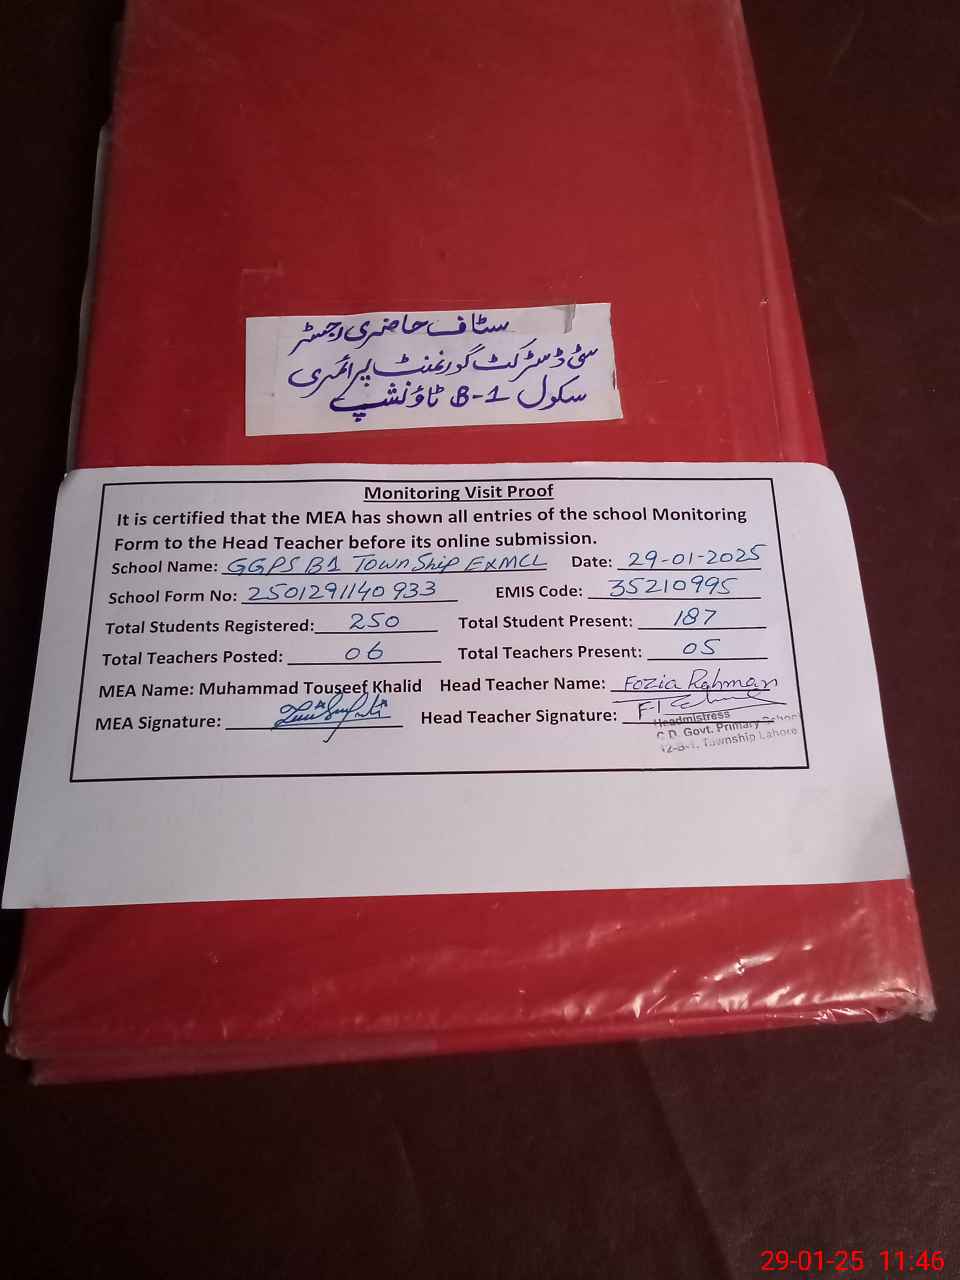 سٹاف حاضری رجسٹر
سٹی ڈسٹرکٹ گورنمنٹ پرائمری
سکول B-1 ٹاؤنشپ
Monitoring Visit Proof
It is certified that the MEA has shown all entries of the school Monitoring
Form to the Head Teacher before its online submission.
School Name: GGPS B1 Township EXMCL Date: 29-01-2025
School Form No: 2501291140933 EMIS Code: 35210995
Total Students Registered: 250 Total Student Present: 187
Total Teachers Posted: 06 Total Teachers Present: 05
MEA Name: Muhammad Touseef Khalid Head Teacher Name: Fozia Rahman
MEA Signature: Head Teacher Signature:
Headmistress
C.D. Govt. Primary School
12-B-1, Township Lahore
29-01-25 11:46